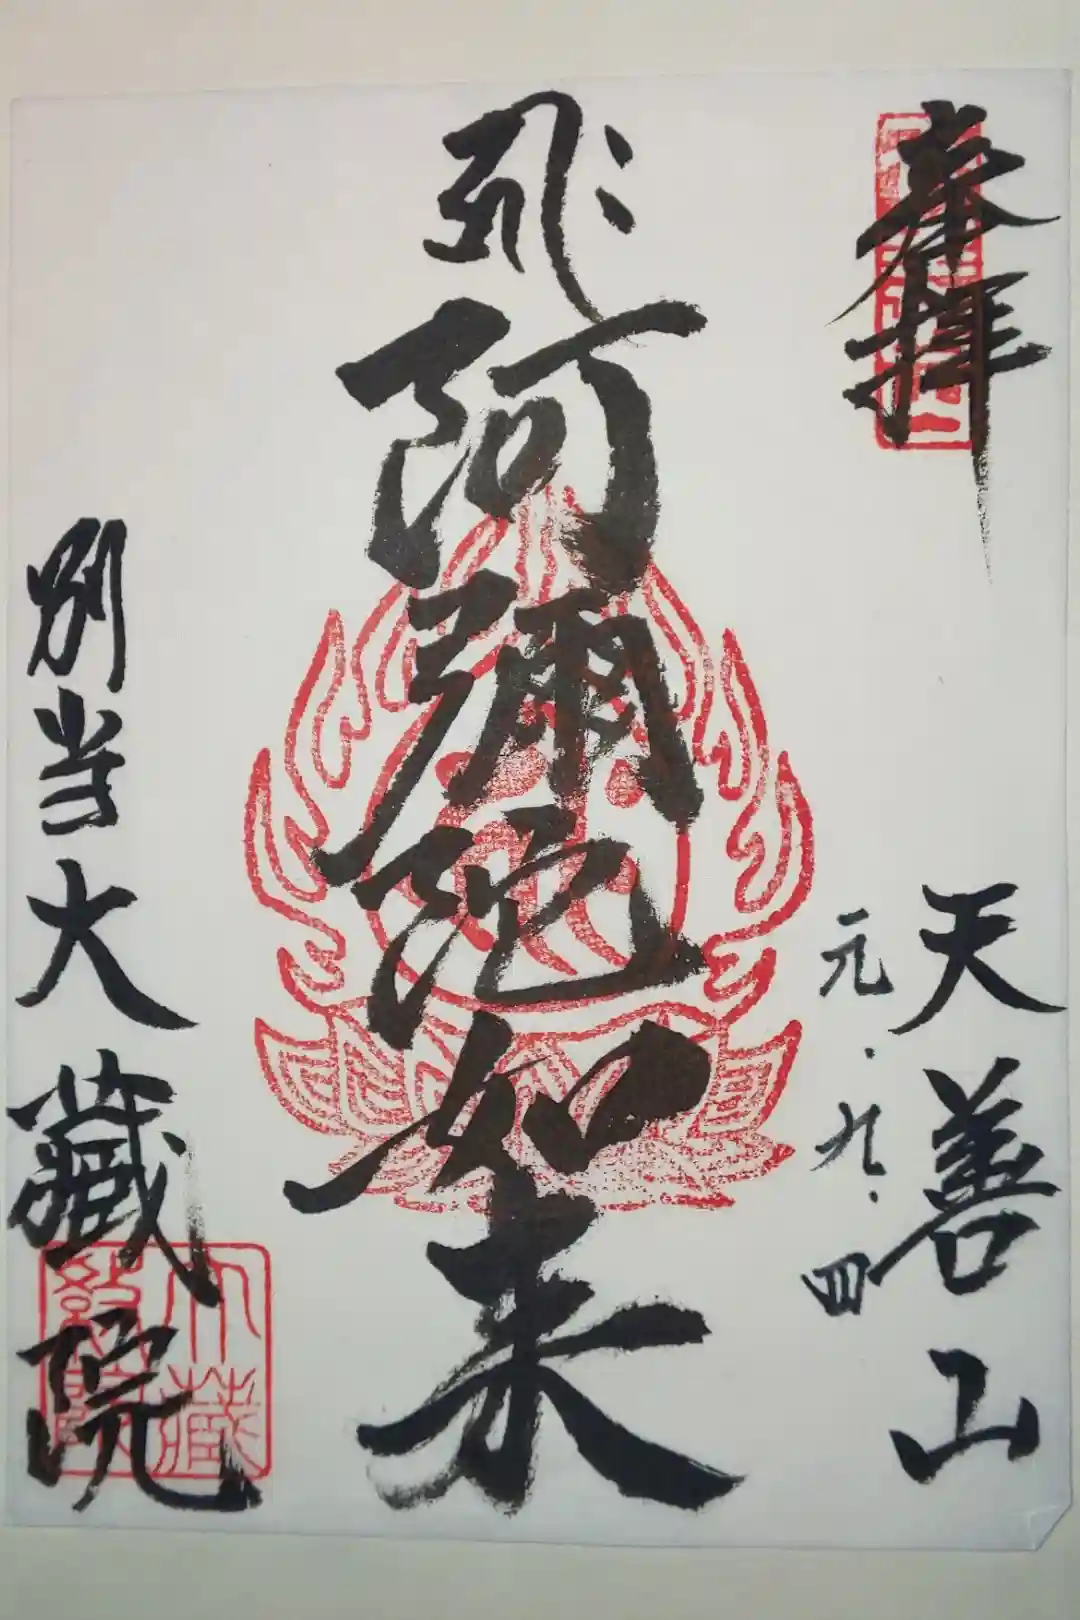 奉拝
天善山
元.九.四
阿彌陀如来
別当大蔵院